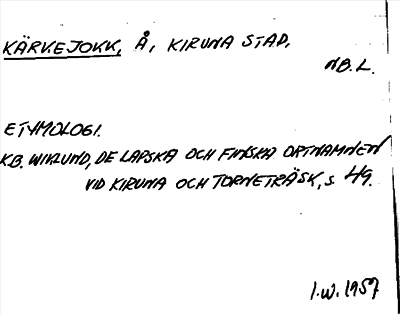 KÄRKEJOKK, Å, KIRUNA STAD.
NB.L.
ETYMOLOGI.
K.B. WIKLUND, DE LAPSKA OCH FINSKA ORTNAMNEN
VID KIRUNA OCH TORNETRÄSK, s. 49.
I.W. 1957